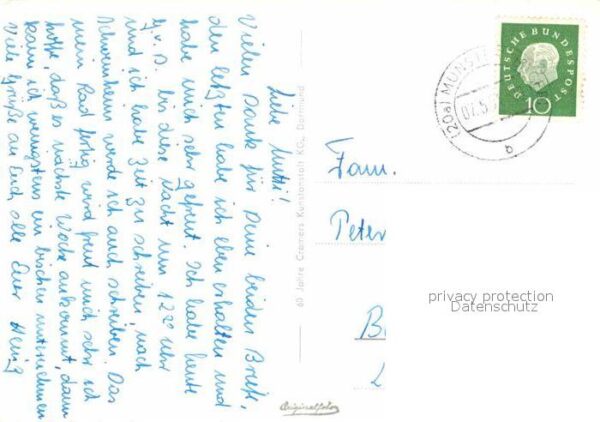 Liebe Mutti!
Vielen Dank für Deine beiden Briefe,
den letzten habe ich eben erhalten und
habe mich sehr gefreut. Ich habe heute
G.v.D. bis diese Nacht um 12°° Uhr
und ich habe Zeit zu schreiben, nach
Schwenheim werde ich auch schreiben. Das
mein Rad fertig wird freut mich sehr ich
hoffe, daß es nächste Woche ankommt, dann
kann ich wenigstens ein bischen unternehmen
Viele Grüße an Euch alle Euer Heinz
60 Jahre Cramers Kunstanstalt KG, Dortmund
Originalfoto
(20a) MUNSTE
07.5
b
DEUTSCHE BUNDESPOST
10
Fam.
Peter
B
privacy protection
Datenschutz